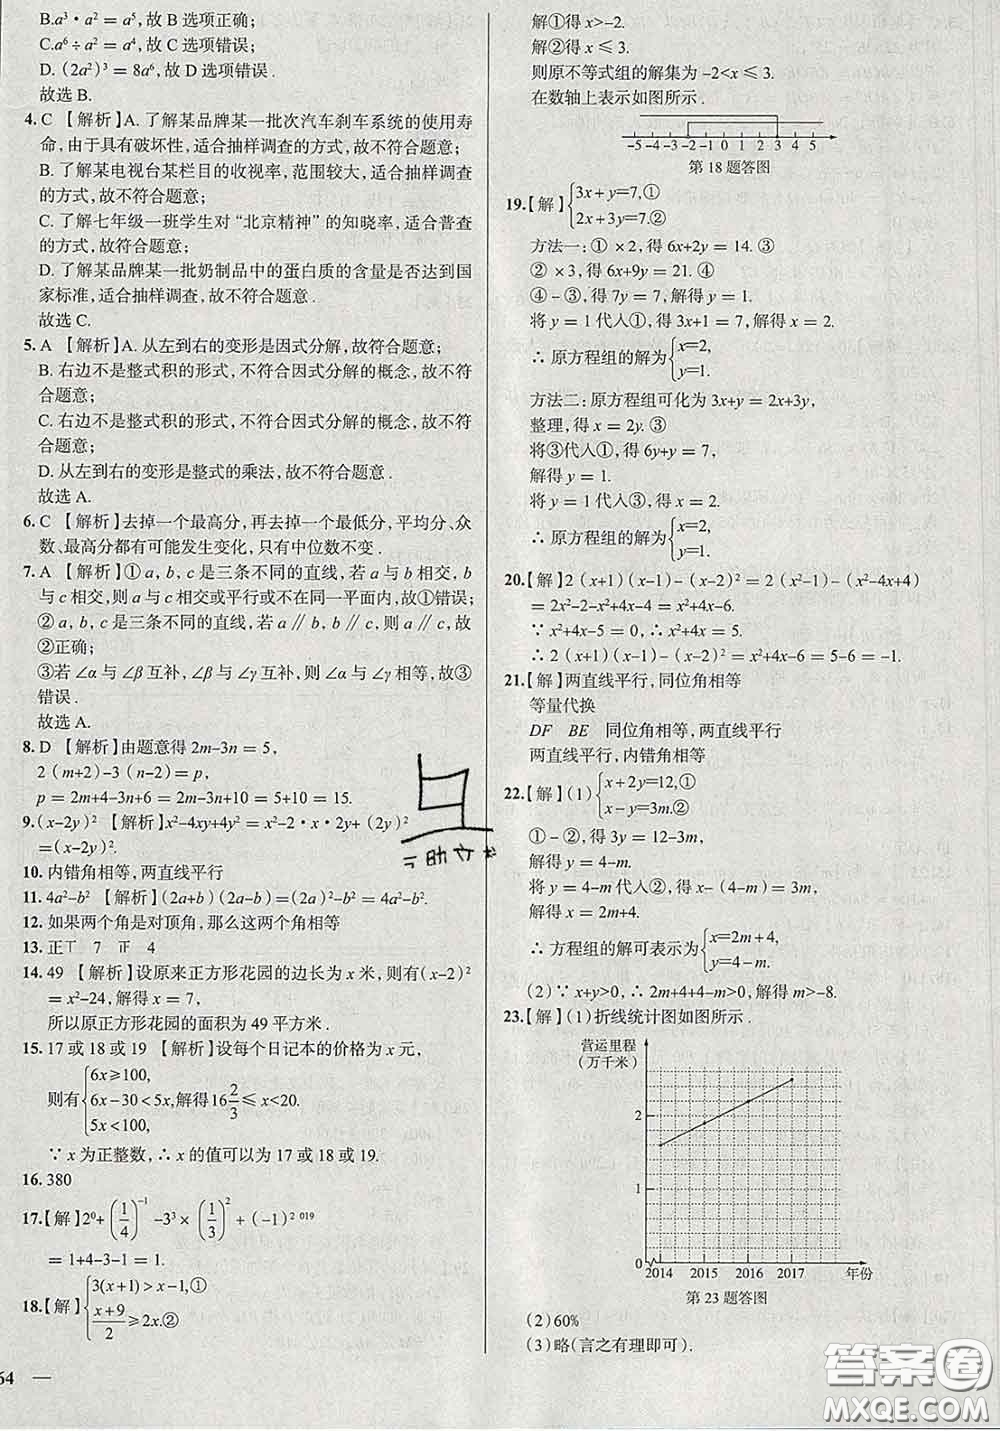 B.a³·a²=a⁵,故B选项正确;
C.a⁶÷a²=a⁴,故C选项错误;
D.(2a²)³=8a⁶,故D选项错误.
故选B.
4.C 【解析】A.了解某品牌某一批次汽车刹车系统的使用寿
命,由于具有破坏性,适合抽样调查的方式,故不符合题意;
B.了解某电视台某栏目的收视率,范围较大,适合抽样调查
的方式,故不符合题意;
C.了解七年级一班学生对“北京精神”的知晓率,适合普查
的方式,故符合题意;
D.了解某品牌某一批奶制品中的蛋白质的含量是否达到
国家标准,适合抽样调查,故不符合题意.
故选C.
5.A 【解析】A.从左到右的变形是因式分解,故符合题意;
B.右边不是整式积的形式,不符合因式分解的概念,故不
符合题意;
C.右边不是整式积的形式,不符合因式分解的概念,故不
符合题意;
D.从左到右的变形是整式的乘法,故不符合题意.
故选A.
6.C 【解析】去掉一个最高分,再去掉一个最低分,平均分、众
数、最高分都有可能发生变化,只有中位数不变.
7.A 【解析】①a,b,c是三条不同的直线,若a与b相交,b
与c相交,则a与c相交或平行或不在同一平面内,故①错误;
②a,b,c是三条不同的直线,若a∥b,b∥c,则a∥c,故
②正确;
③若∠α与∠β互补,∠β与∠γ互补,则∠α与∠γ相等,故③
错误.
故选A.
8.D 【解析】由题意得2m-3n=5,
2(m+2)-3(n-2)=p,
p=2m+4-3n+6=2m-3n+10=5+10=15.
9.(x-2y)² 【解析】x²-4xy+4y²=x²-2·x·2y+(2y)²
=(x-2y)².
10.内错角相等,两直线平行
11.4a²-b² 【解析】(2a+b)(2a-b)=(2a)²-b²=4a²-b².
12.如果两个角是对顶角,那么这两个角相等
13.正𠄌 7 正 4
14.49 【解析】设原来正方形花园的边长为x米,则有(x-2)²
=x²-24,解得x=7,
所以原正方形花园的面积为49平方米.
15.17或18或19 【解析】设每个日记本的价格为x元,
则有{6x≥100, 6x-30<5x, 5x<100, 解得16 2/3≤x<20.
∵x为正整数,∴x的值可以为17或18或19.
16.380
17.【解】2⁰+(1/4)⁻¹-3³×(1/3)²+(-1)²⁰¹⁹
=1+4-3-1=1.
18.【解】{3(x+1)>x-1,① (x+9)/2≥2x.②
64
解①得x>-2.
解②得x≤3.
则原不等式组的解集为-2<x≤3.
在数轴上表示如图所示.
-5 -4 -3 -2 -1 0 1 2 3 4 5
第18题答图
19.【解】{3x+y=7,① 2x+3y=7.②
方法一:①×2,得6x+2y=14.③
②×3,得6x+9y=21.④
④-③,得7y=7,解得y=1.
将y=1代入①,得3x+1=7,解得x=2.
∴原方程组的解为{x=2, y=1.
方法二:原方程组可化为3x+y=2x+3y,
整理,得x=2y.③
将③代入①,得6y+y=7,
解得y=1.
将y=1代入③,得x=2,
∴原方程组的解为{x=2, y=1.
20.【解】2(x+1)(x-1)-(x-2)²=2(x²-1)-(x²-4x+4)
=2x²-2-x²+4x-4=x²+4x-6.
∵x²+4x-5=0,∴x²+4x=5.
∴2(x+1)(x-1)-(x-2)²=x²+4x-6=5-6=-1.
21.【解】两直线平行,同位角相等
等量代换
DF BE 同位角相等,两直线平行
两直线平行,内错角相等
22.【解】(1){x+2y=12,① x-y=3m.②
①-②,得3y=12-3m,
解得y=4-m.
将y=4-m代入②,得x-(4-m)=3m,
解得x=2m+4,
∴方程组的解可表示为{x=2m+4, y=4-m.
(2)∵x+y>0,∴2m+4+4-m>0,解得m>-8.
23.【解】(1)折线统计图如图所示.
营运里程
(万千米)
2
1
0
2014 2015 2016 2017 年份
第23题答图
(2)60%
(3)略(言之有理即可).
答案圈
MXQE.COM